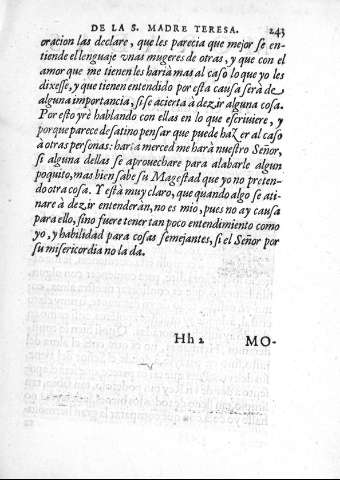 DE LA S. MADRE TERESA. 243
oracion las declare, que les parecia que mejor se en-
tiende el lenguaje vnas mugeres de otras, y que con el
amor que me tienen les haria mas al caso lo que yo les
dixesse, y que tienen entendido por esta causa serà de
alguna importancia, si se acierta à dezir alguna cosa.
Por esto yrè hablando con ellas en lo que escriuiere, y
porque parece desatino pensar que puede hazer al caso
à otras personas: harta merced me harà nuestro Señor,
si alguna dellas se aprouechare para alabarle algun
poquito, mas bien sabe su Magestad que yo no preten-
do otra cosa. Y està muy claro, que quando algo se ati-
nare à dezir entenderàn, no es mio, pues no ay causa
para ello, sino fuere tener tan poco entendimiento como
yo, y habilidad para cosas semejantes, si el Señor por
su misericordia no la da.
Hh 2 MO-